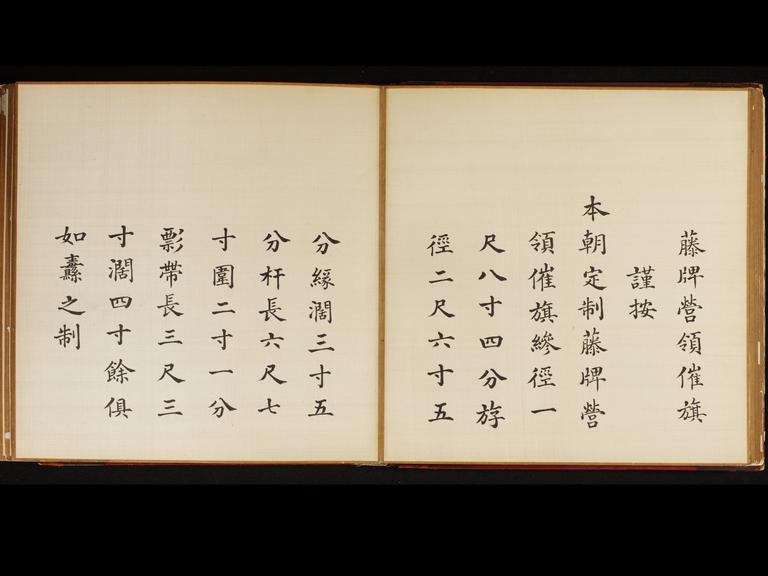 藤牌營領催旗
謹按
本朝定制藤牌營
領催旗縿徑一
尺八寸四分斿
徑二尺六寸五
分緣濶三寸五
分杆長六尺七
寸圍二寸一分
彯帶長三尺三
寸濶四寸餘俱
如纛之制